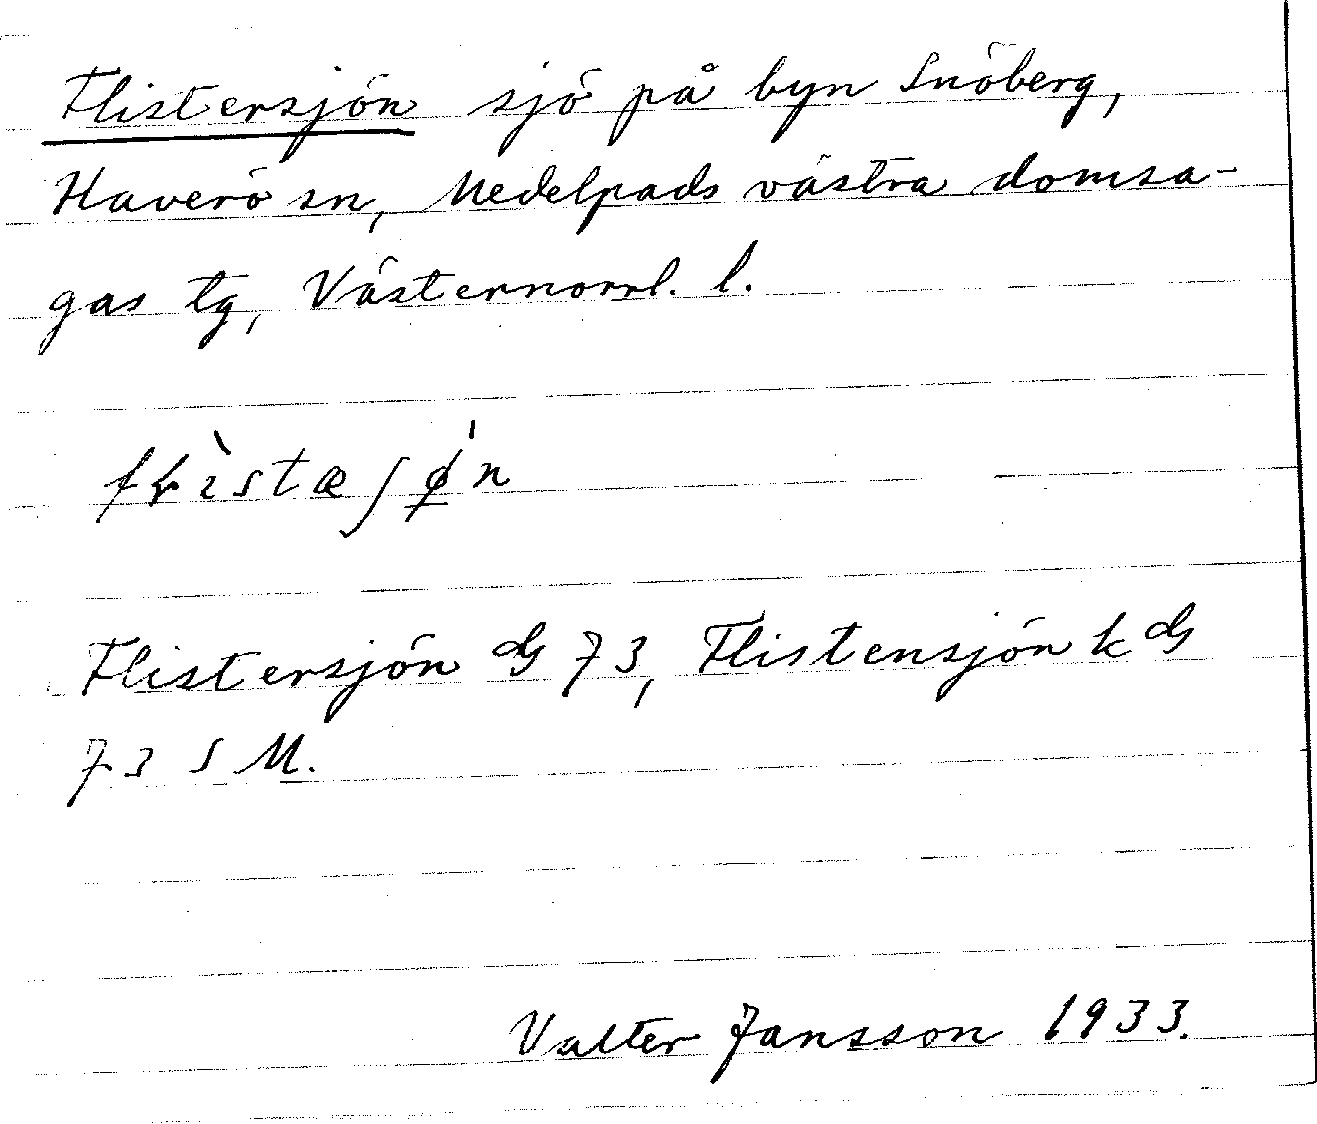 Flistersjön sjö på byn Snöberg,
Haverö sn, Medelpads västra domsa-
gas tg, Västernorrl. l.
Flistersjön G 73, Flistensjön k G
73 S M.
Valter Jansson 1933.